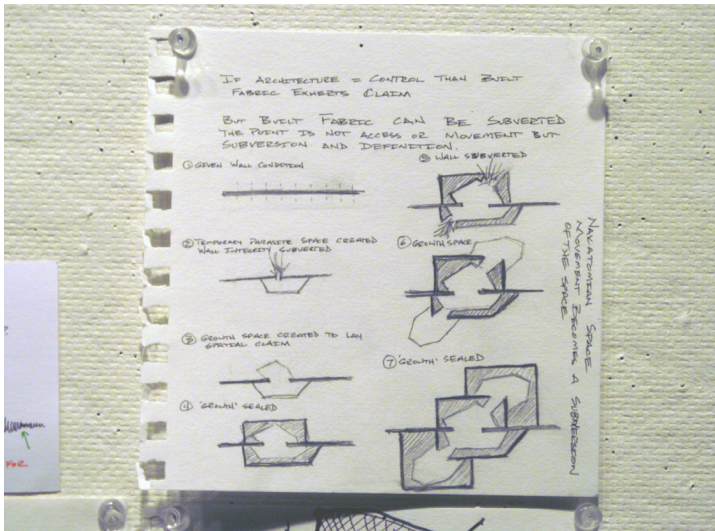 IF ARCHITECTURE = CONTROL THAN BUILT
FABRIC EXHERTS CLAIM
BUT BUILT FABRIC CAN BE SUBVERTED
THE POINT IS NOT ACCESS OR MOVEMENT BUT
SUBVERSION AND DEFINITION.
① GIVEN WALL CONDITION
② TEMPORARY PARASITE SPACE CREATED
WALL INTEGRITY SUBVERTED
③ GROWTH SPACE CREATED TO LAY
SPATIAL CLAIM
④ 'GROWTH' SEALED
⑤ WALL SUBVERTED
⑥ GROWTH SPACE
⑦ 'GROWTH' SEALED
NAKATOMIAN SPACE
MOVEMENT BECOMES A SUBVERSION
OF THE SPACE
FOR